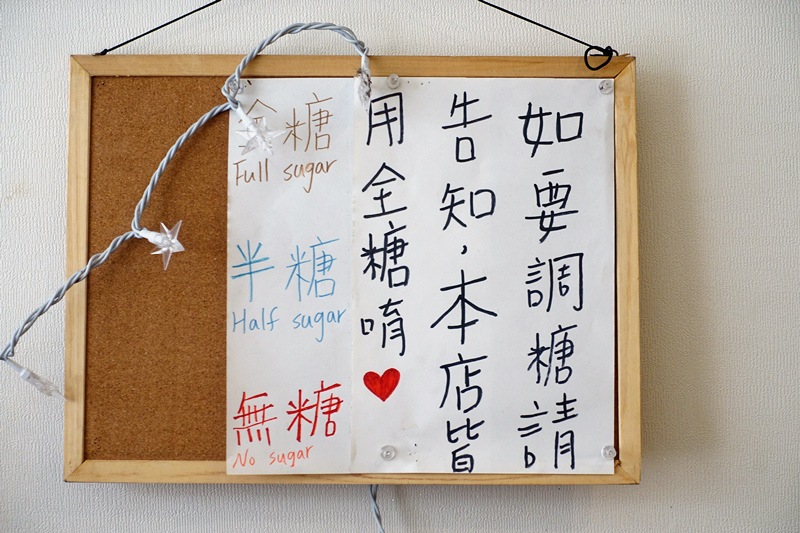 如要調糖請
告知,本店皆
用全糖唷
全糖
Full sugar
半糖
Half sugar
無糖
No sugar